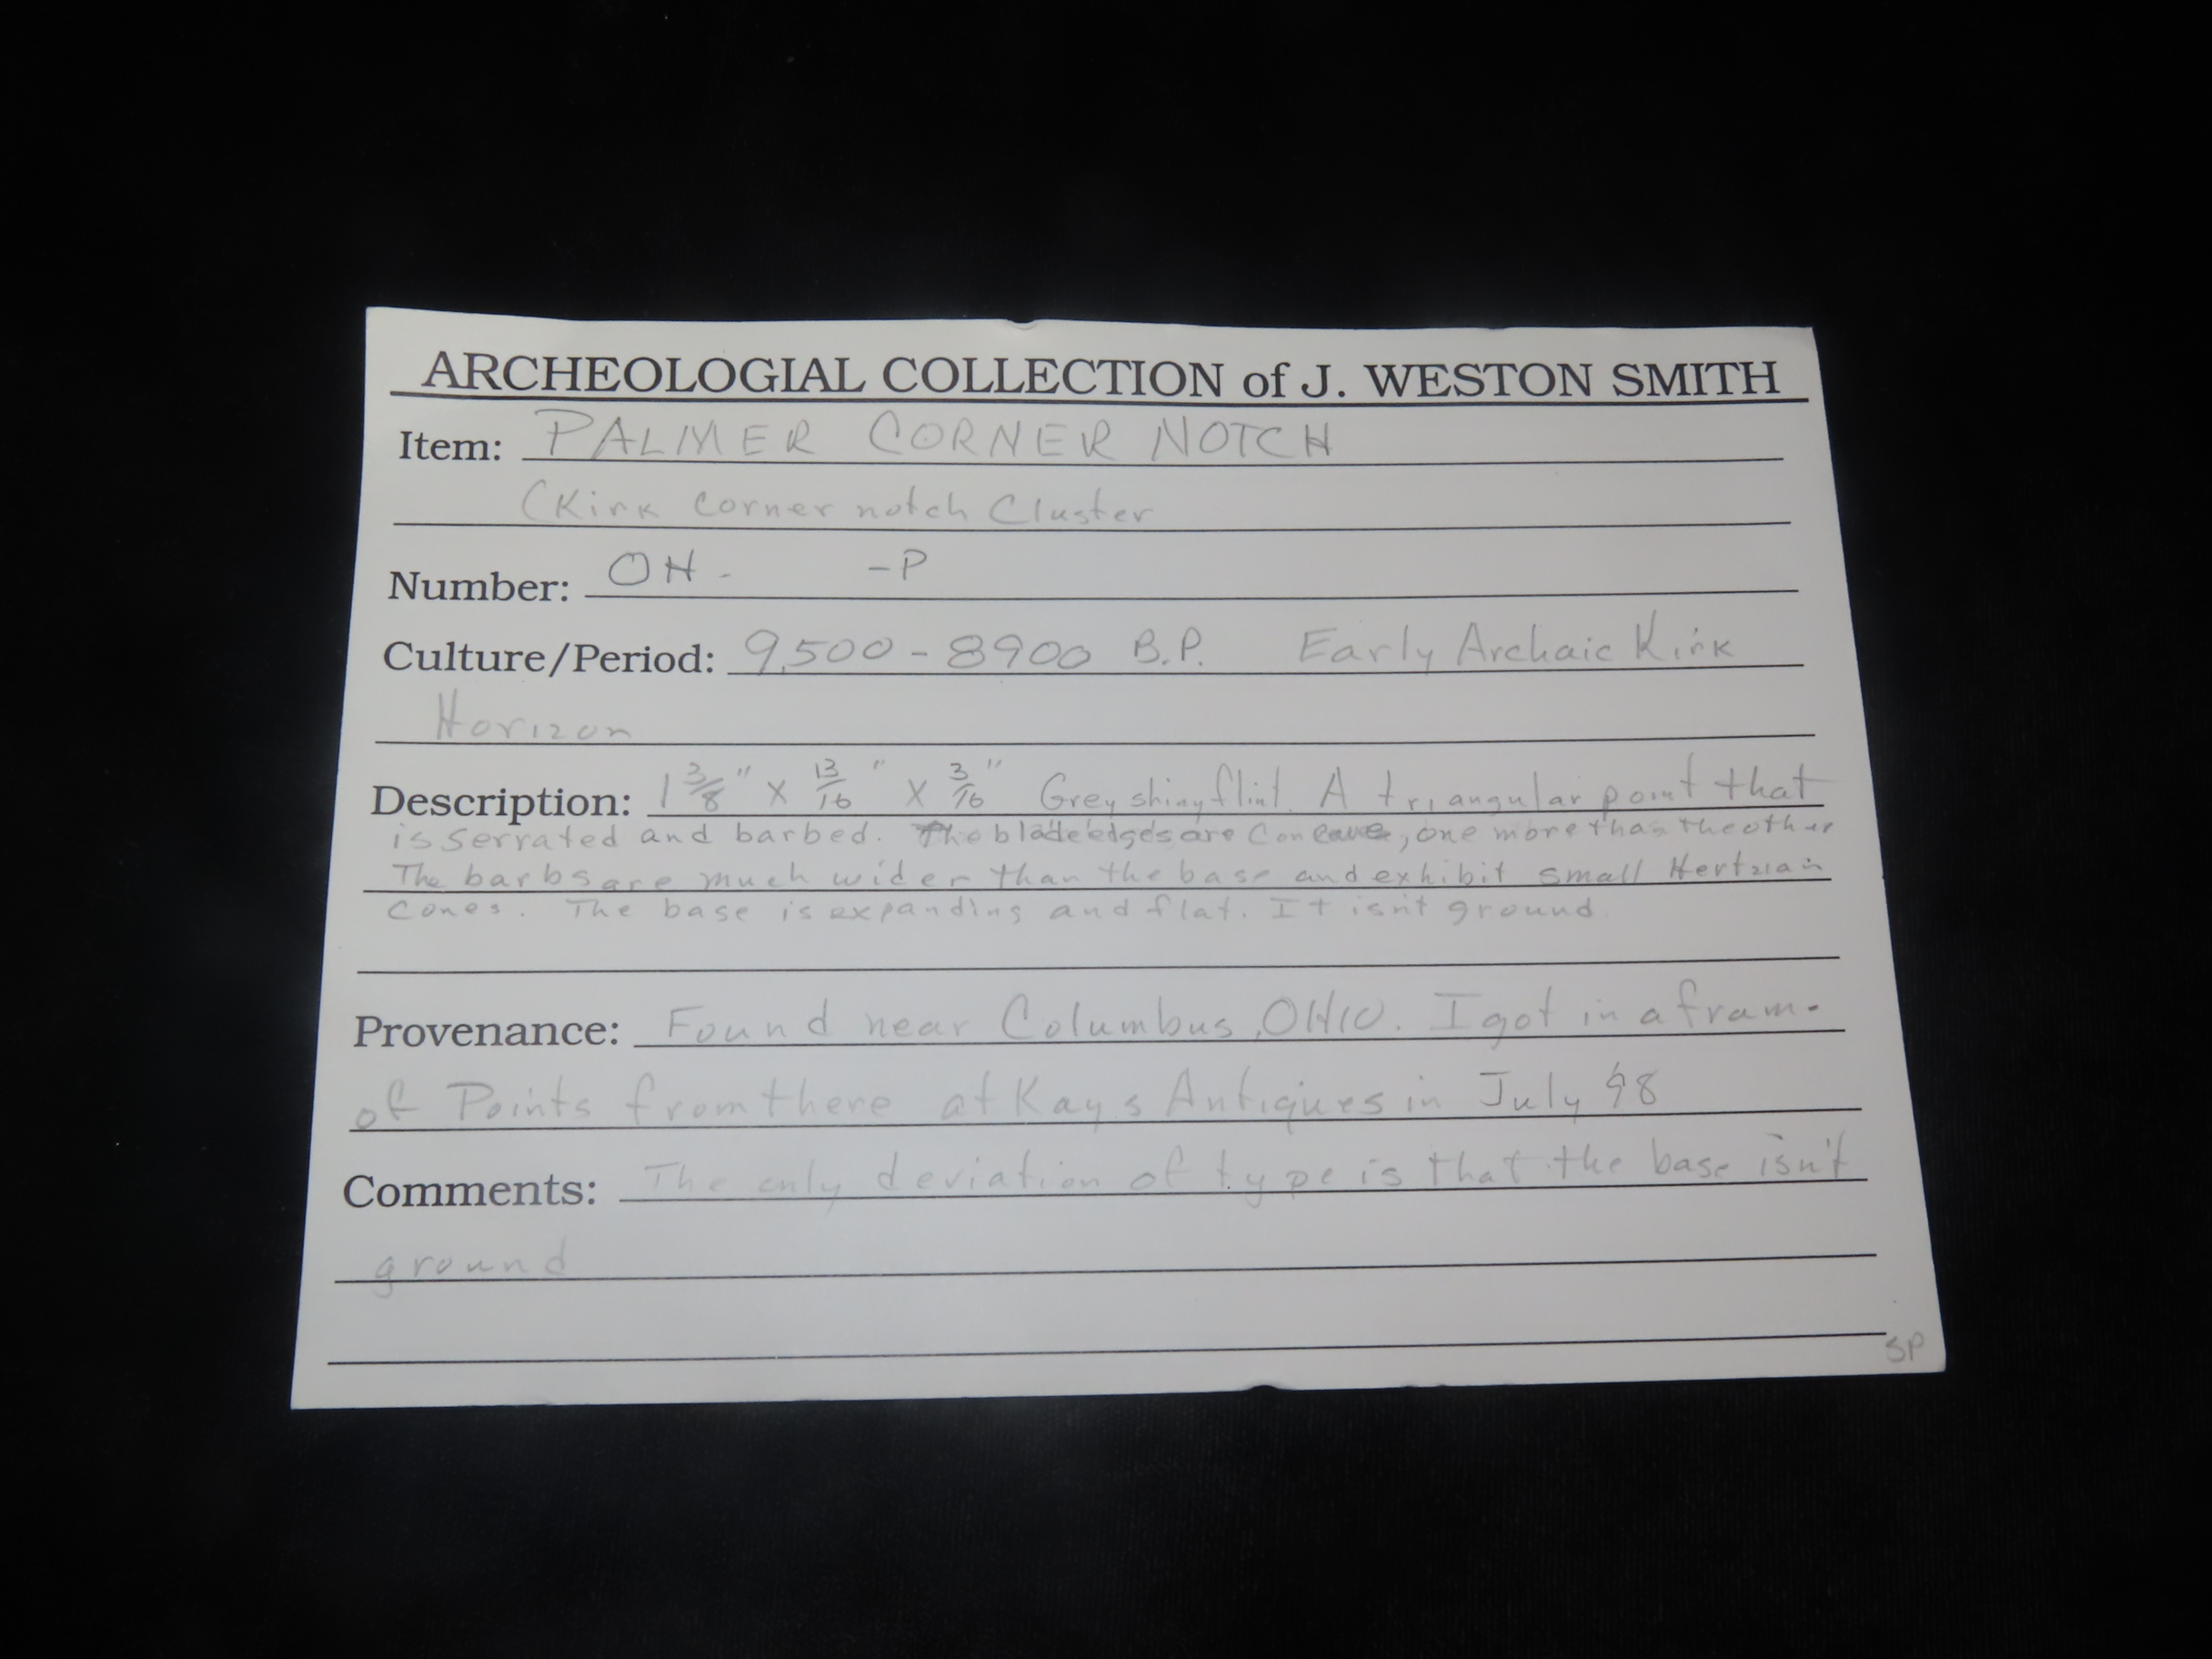 ARCHEOLOGIAL COLLECTION of J. WESTON SMITH
Item: PALMER CORNER NOTCH
(Kirk Corner notch Cluster
Number: OH - -P
Culture/Period: 9,500 - 8900 B.P. Early Archaic Kirk
Horizon
Description: 1 3/8" X 13/16" X 3/16" Grey shiny flint. A triangular point that
is serrated and barbed. The blade edges are Concave, one more than the other
The barbs are much wider than the base and exhibit small Hertzian
Cones. The base is expanding and flat. It isn't ground
Provenance: Found near Columbus, OHIO. I got in a frame
of Points from there at Kays Antiques in July 98
Comments: The only deviation of type is that the base isn't
ground
SP